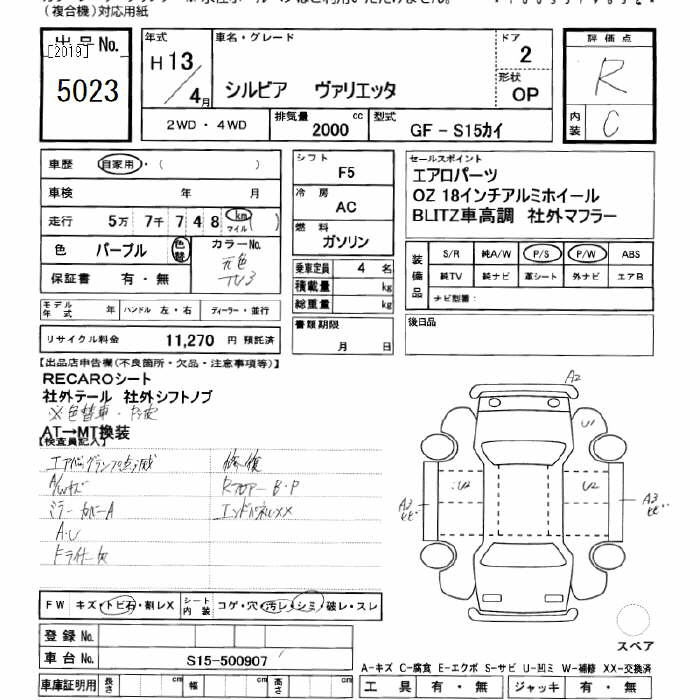 (複合機)対応用紙
出品No.
[2019]
5023
年式
H13/4月
車名・グレード
シルビア ヴァリエッタ
ドア
2
形状
OP
評価点
R
内装
C
2WD・4WD
排気量 2000 cc
型式 GF-S15カイ
車歴 自家用・( )
車検 年 月
走行 5万 7千 7 4 8 km マイル ( )
色 パープル 色替
カラーNo.
元色
TV3
保証書 有・無
シフト
F5
冷房
AC
燃料
ガソリン
乗車定員 4 名
積載量 kg
総重量 kg
書類期限
月 日
セールスポイント
エアロパーツ
OZ 18インチアルミホイール
BLITZ車高調 社外マフラー
装備品
S/R 純A/W P/S P/W ABS
純TV 純ナビ 革シート 外ナビ エアB
ナビ型番:
モデル年式 年 ハンドル 左・右 ディーラー・並行
後日品
リサイクル料金 11,270 円 預託済
【出品店申告欄(不良箇所・欠品・注意事項等)】
RECAROシート
社外テール 社外シフトノブ
※色替車・
AT→MT換装
【検査員記入】
エアバッグランプ点滅
A/Wキズ
ミラーカバーA
A・U
修復
RフロアーB・P
エンドパネルXX
A2
U1
U2
U2
A3
A3
FW キズ・トビ石・割レX
シート内装 コゲ・穴・汚レ・シミ・破レ・スレ
スペア
登録No.
車台No. S15-500907
A-キズ C-腐食 E-エクボ S-サビ U-凹ミ W-補修 XX-交換済
車庫証明用 長さ cm 幅 cm 高さ cm
工具 有・無 ジャッキ 有・無